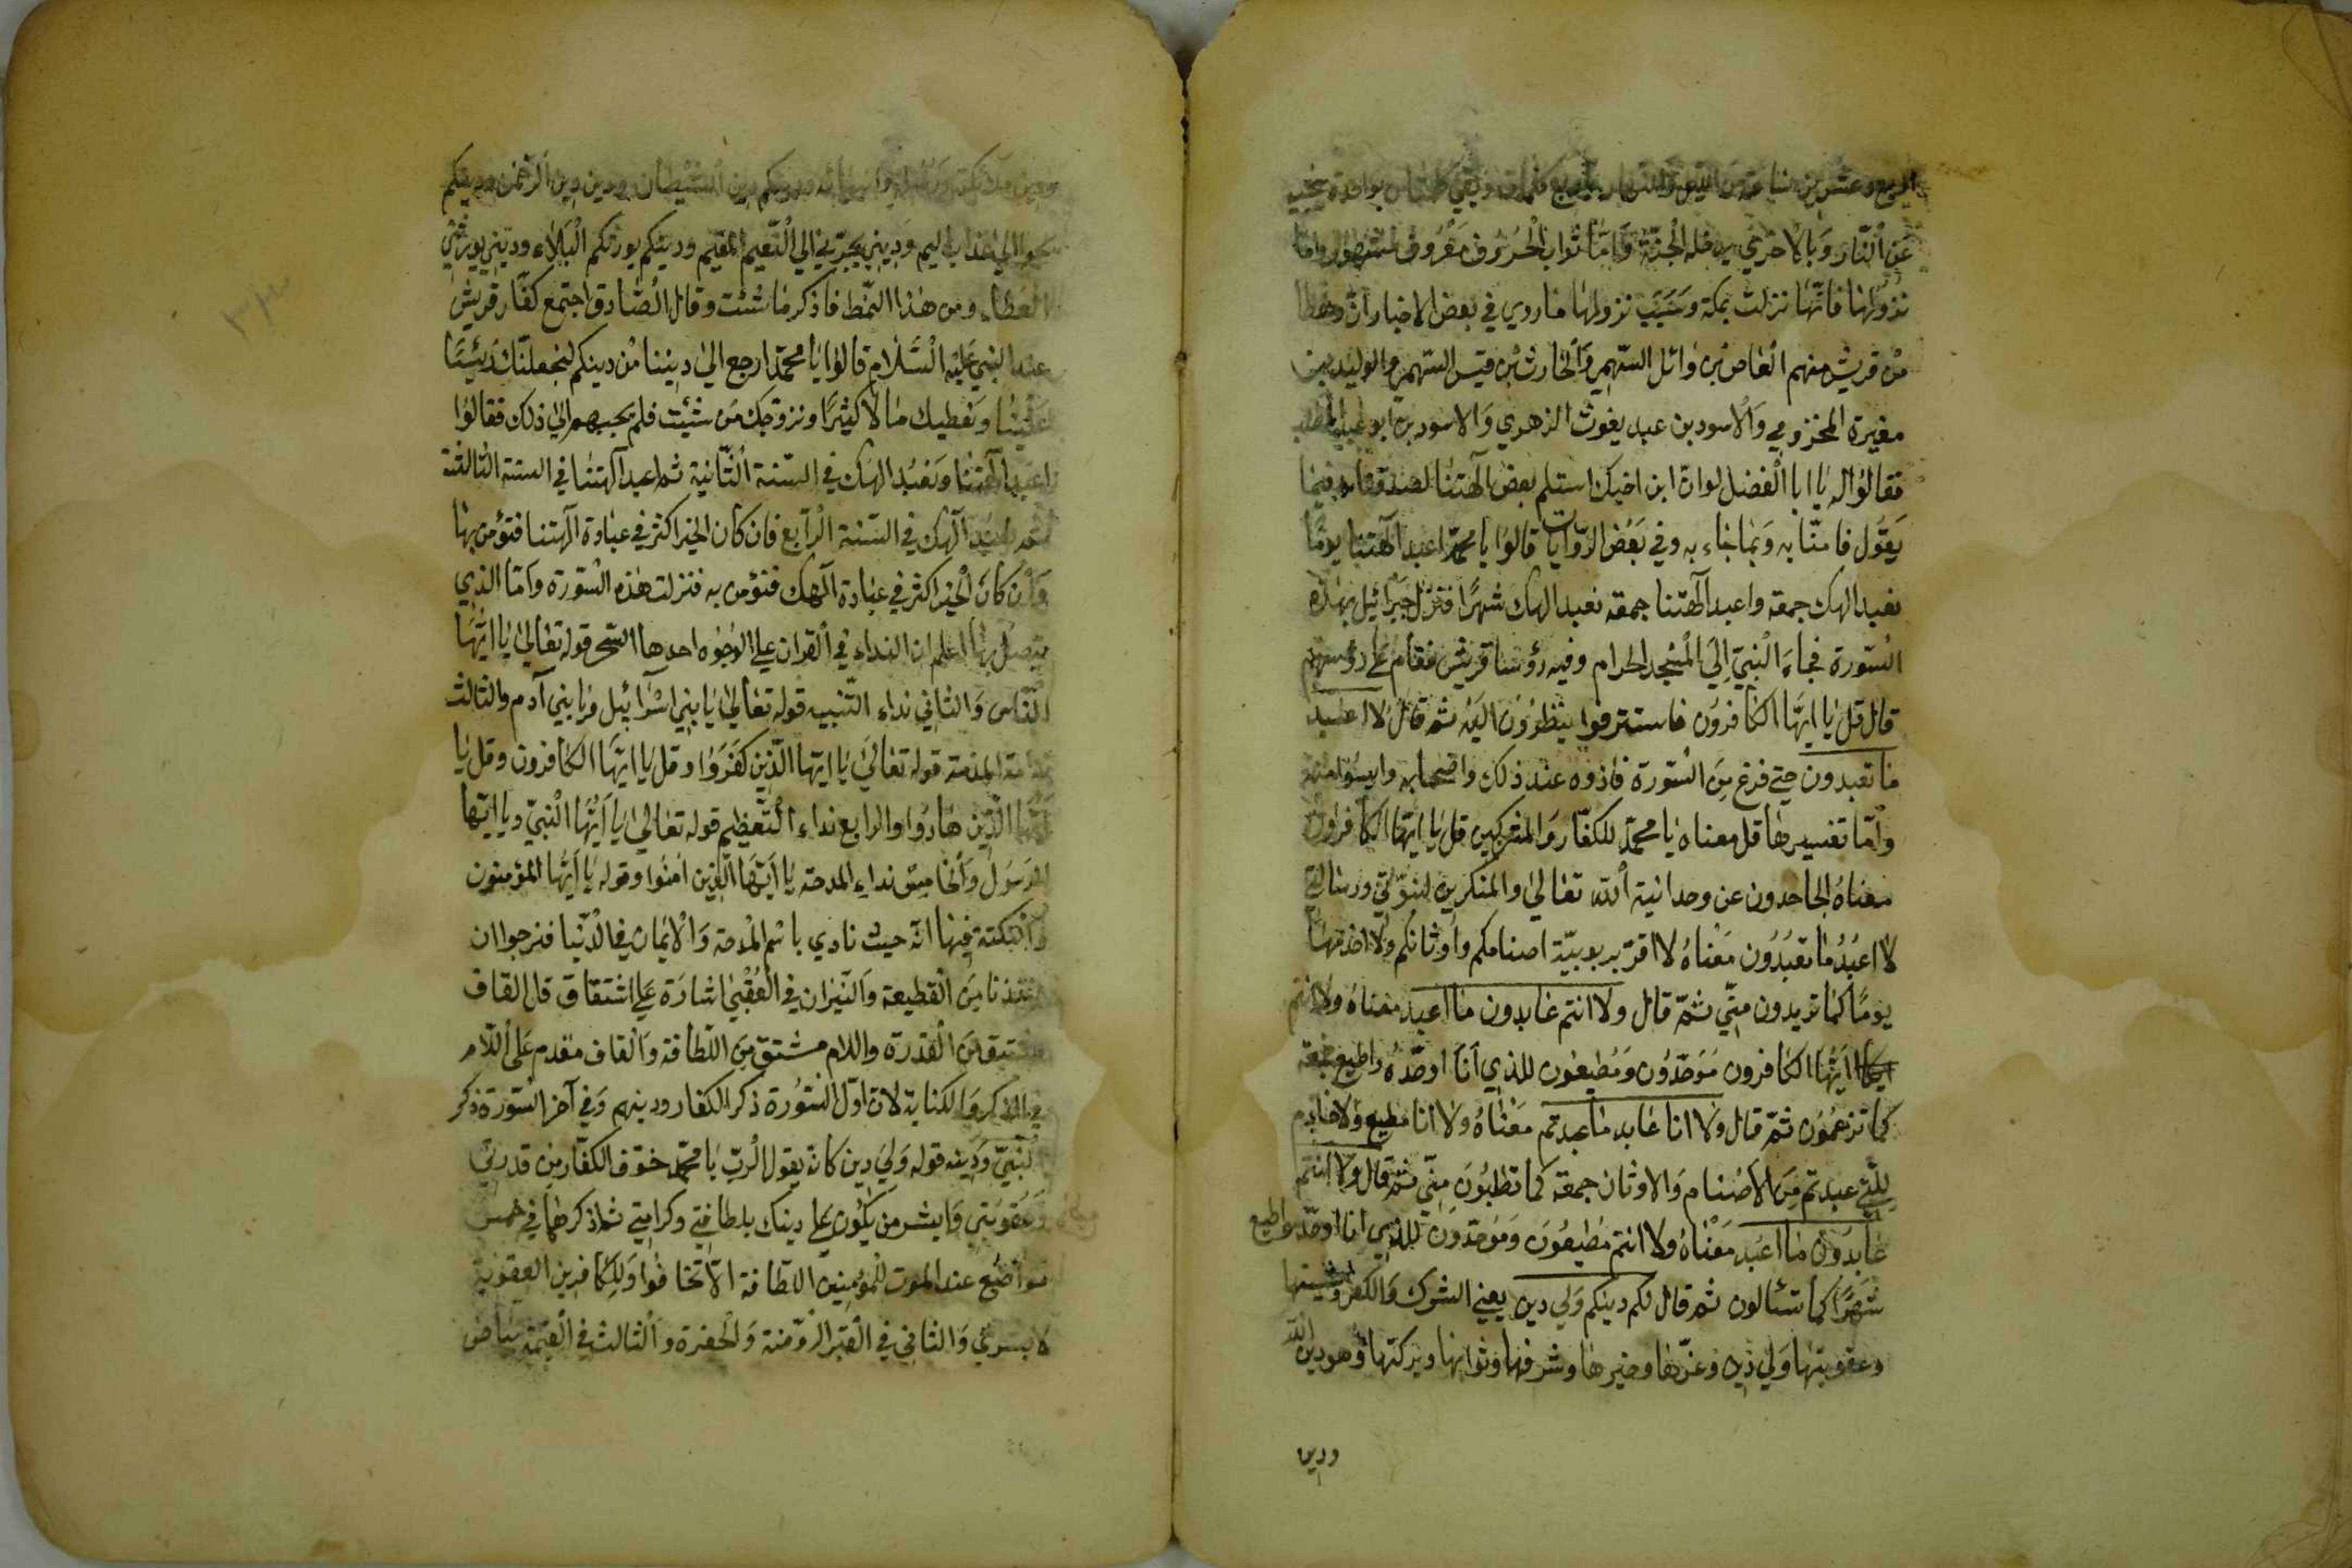 عَنِ النّار وَبالاخري يدخله الجنّة وَامّا ثواب الحُروف مَعْرُوف مشهور وامّا
نزولهٰا فانّهٰا نزلت بمكة وسَبَبَ نزولهٰا مٰا روي في بعض الاخبار انّ رهطا
مْن قريش منهم العٰاص بْن وٰائل السّهمي وَالحٰارث بْن قيس السّهمي والوليد بن
مغيرة المخزومي وَالاسود بن عبد يغوث الزهري وَالاسود بن
فقالوا له يٰا ابا الْفضل لو انّ ابن اخيك استلم بعض آلهتنٰا لصدقناه فيمٰا
يَقُول فامنّا به وَبمٰا جٰاء به وفي بَعْض الرّوايات قالوُا يا محمّد اعبد آلهتنا يومًا
نعبد الهك جمعة واعبد آلهتنا جمعة نعبد الهك شهرًا فنزل جبرائيل بهٰذه
السّورة فجاءَ النّبيّ اِلَي الْمسْجد الحرام وفيه رؤسٰا قريش فقام علي رؤسهم
قال قل يٰا ايهّا الكٰافروُن فاستترفوا ينظروُن اليَه ثم قال لا اعبد
مٰا تعبدون حتي فرغ مِن السُّورة فاذوه عند ذلك واصحابه وايسُوا منه
وامّا تفسيرهٰا قل معناه يٰا محمّد للكفّار وَالمشركين قل يٰا ايهّا الكافرون
معنٰاهُ الجاحدون عن وحدانية الله تعالي والمنكرين لنبوّتي ورسالتي
لا اعبُدُ مٰا تعبُدوُن مَعْنٰاهُ لا اقرّ بربوبيّة اصنامكم واوثانكم ولا اخدمهٰا
يومًا كما تريدون منّي ثمّ قال ولا انتم عٰابدون مٰا اعبد معناهُ ولا انتم
ايَهُّا الكٰافرون مُوَحّدُون وَمُطيعُون للذي اَنَا اوحّدُهُ واطيع جمعة
كما تزعمُون ثمّ قال وَلا انٰا عٰابد مٰا عبدتم مَعْنٰاهُ ولا انا مطيع ولا خادم
للّتي عبدتم مِنَ الاَصْنام وَالاوثان جمعة كما تطلبُون مِنّي ثمّ قال ولا انتم
عٰابدُون مٰا اعبُد مَعْنٰاهُ ولا انتم مُطيعُون وَمُوَحّدُون للذي انا اوحّد واطيع
شهرًا كمٰا تسئالون ثم قال لكم دينكم وَلي دين يعني الشرك وَالكفر وشينهٰا
وعقوبتهٰا وَلي دين وعزّهٰا وخيرهٰا وشرفهٰا وثوابهٰا وبركتهٰا وهو دين الله
ودين
دين الشيْطان وديني دين الرّحْمن ودينكم
الي عذاب اليم وديني يجرّني الي النّعيم المقيم ودينكم يورثكم البَلاء وديني يورثني
العطاء ومن هٰذا النّمط فاذكر مٰا شئت وقال الصّادق اجتمع كفّار قريش
عند النبي عليْه السَّلام قالوُا يٰا محمّد ارجع الي ديننا مْن دينكم لنجعلنّك رَئيسًا
علينٰا وَنعطيك مٰالا كثيرًا ونزوّجك مَن شئت فلم يجبهم الي ذلك فقالوُا
اعبد آلهتنٰا وَنعبُد الهك في السّنة الثّانية ثم اعبد آلهتنٰا في السنة الثالثة
ثم نعبُد آلهك في السّنة الرّابع فان كان الخير اكثر في عبادة آلهتنا فتؤمن بهٰا
وَان كانَ الخير اكثر في عبٰادة آلهك فنؤمن به فنزلت هٰذه السّورة وامّا الذي
يتصل بهٰا اعلم ان النداء في القران علي الوُجوُه احدها قوله تعالي يٰا ايّهَا
النّاس وَالثاني نداء التّنبيه قوله تعالي يٰا بني اسْرائيل ويٰا بني آدم والثالث
المذمة قوله تعالي يٰا ايّها الّذين كفَرَوُا وقل يا ايّهَا الكافرون وقل يٰا
ايّهَا الّذين هٰادُوا والرابع نداء التّعظيم قوله تعالي يٰا اَيُّهَا النّبيّ ويا ايّها
الرَسُول وَالخامِس نداء المدحة يٰا اَيّهَا الّذين امنُوا وقوله يٰا ايَهُّا المؤمنون
وَالنكتة فيهٰا انّه حيث نادي باسْم المْدحة وَالايمٰان في الدّنيٰا فنرجوا ان
مِنَ القطيعة وَالنّيزان في العُقبٰي اشٰارَة علي اشتقاق قل القاف
مشتق مِنَ القدرة واللام مشتق مِنَ اللّطافة وَالقاف مقدم عَلَي اللّام
في الذكر وَالكنابة لان اوّل السّوُرة ذكر الكفار ودينهم وَفي آخر السّورة ذكر
النّبيّ وَدَينه قوله وَلي دين كانّه يقول الرّبّ يٰا محمّد خوّف الكفّار مِن قدرتي
وَعقوبتي وَابشر من يكُون علي دينك بلطافتي وكرامتي ثم اذكرهٰا في خمس
مواضع عند الموت للمُؤمِنين اللّطافة الاّ تخافُوا وَللكٰافرين العقوبة
لا بشري وَالثاني في القبر الرّوضة وَالحفرة والثالث في القيٰمة بيٰاض